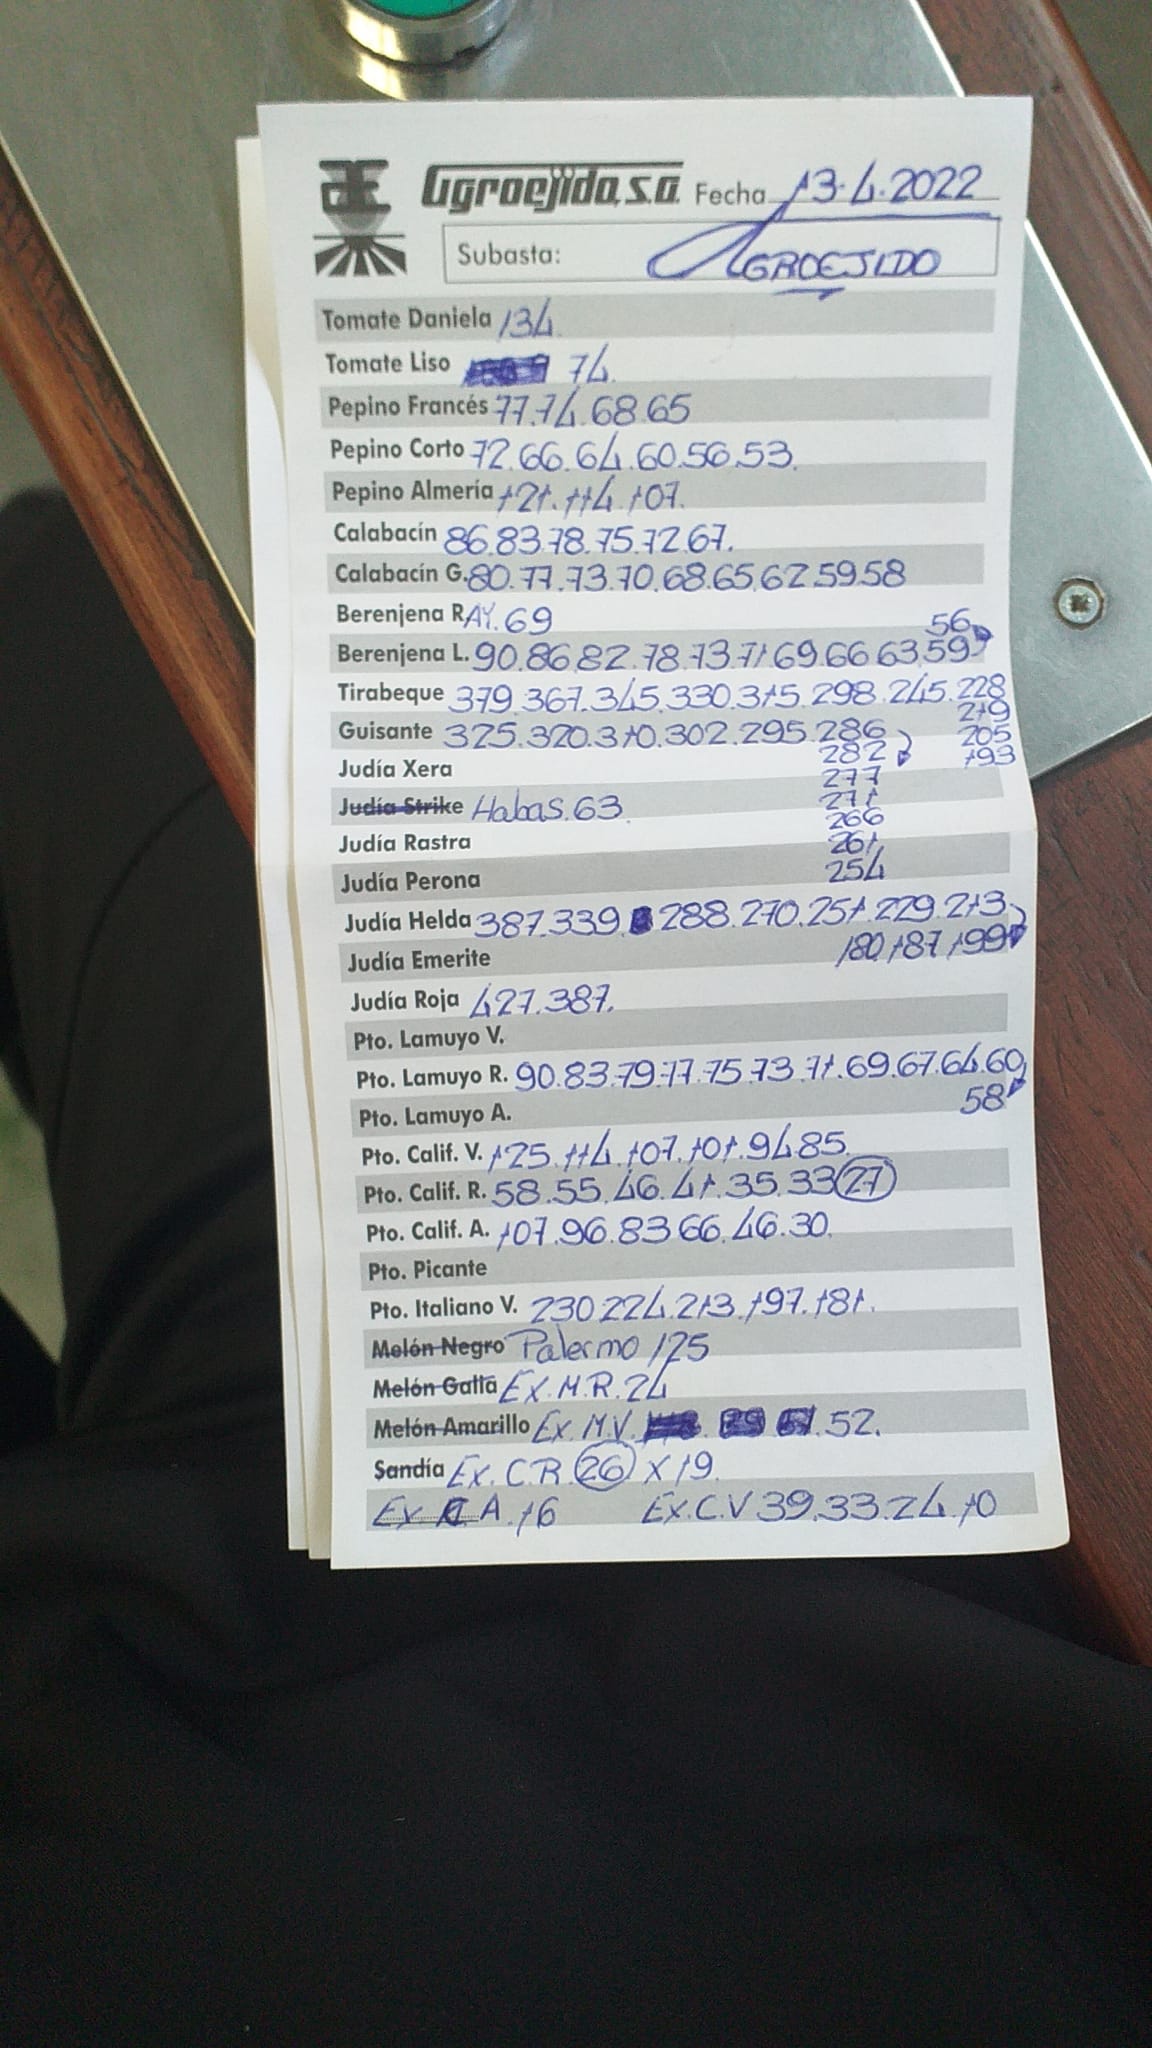 Agroejido, S.A. Fecha 13.4.2022
Subasta: AGROEJIDO
Tomate Daniela 134.
Tomate Liso 74.
Pepino Francés 77.74.68.65
Pepino Corto 72.66.64.60.56.53.
Pepino Almería 121.114.107.
Calabacín 86.83.78.75.72.67.
Calabacín G. 80.77.73.70.68.65.62.59.58
Berenjena RAY. 69
Berenjena L. 90.86.82.78.73.71.69.66.63.59 56
Tirabeque 379.367.345.330.315.298.245.228
219
205
193
Guisante 325.320.310.302.295.286
282
277
271
266
261
254
Judía Xera
Judía Strike Habas. 63.
Judía Rastra
Judía Perona
Judía Helda 387.339. 288.270.251.229.213.
180.187.199
Judía Emerite
Judía Roja 427.387.
Pto. Lamuyo V.
Pto. Lamuyo R. 90.83.79.77.75.73.71.69.67.64.60
58
Pto. Lamuyo A.
Pto. Calif. V. 125.114.107.101.94.85.
Pto. Calif. R. 58.55.46.41.35.33 27
Pto. Calif. A. 107.96.83.66.46.30.
Pto. Picante
Pto. Italiano V. 230.224.213.197.181.
Melón Negro Palermo 125
Melón Galia EX.M.R. 24
Melón Amarillo Ex.M.V. 52.
Sandía Ex.C.R. 26 X 19.
Ex. C A. 16 EX.C.V 39.33.24.10